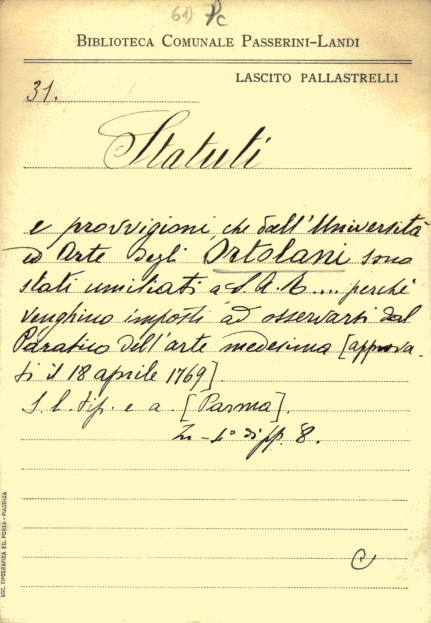 61) Pc
BIBLIOTECA COMUNALE PASSERINI-LANDI
LASCITO PALLASTRELLI
31.
Statuti
e provvigioni che dall'Università
ed Arte degli Ortolani sono
stati umiliati a S. A. R.... perchè
venghino imposti ad osservarsi dal
Paratico dell'arte medesima [approva-
ti il 18 aprile 1769]
S. l. tip. e a. [Parma].
In-4° di pp. 8.
C
SOC. TIPOGRAFICA ED. PORTA - PIACENZA